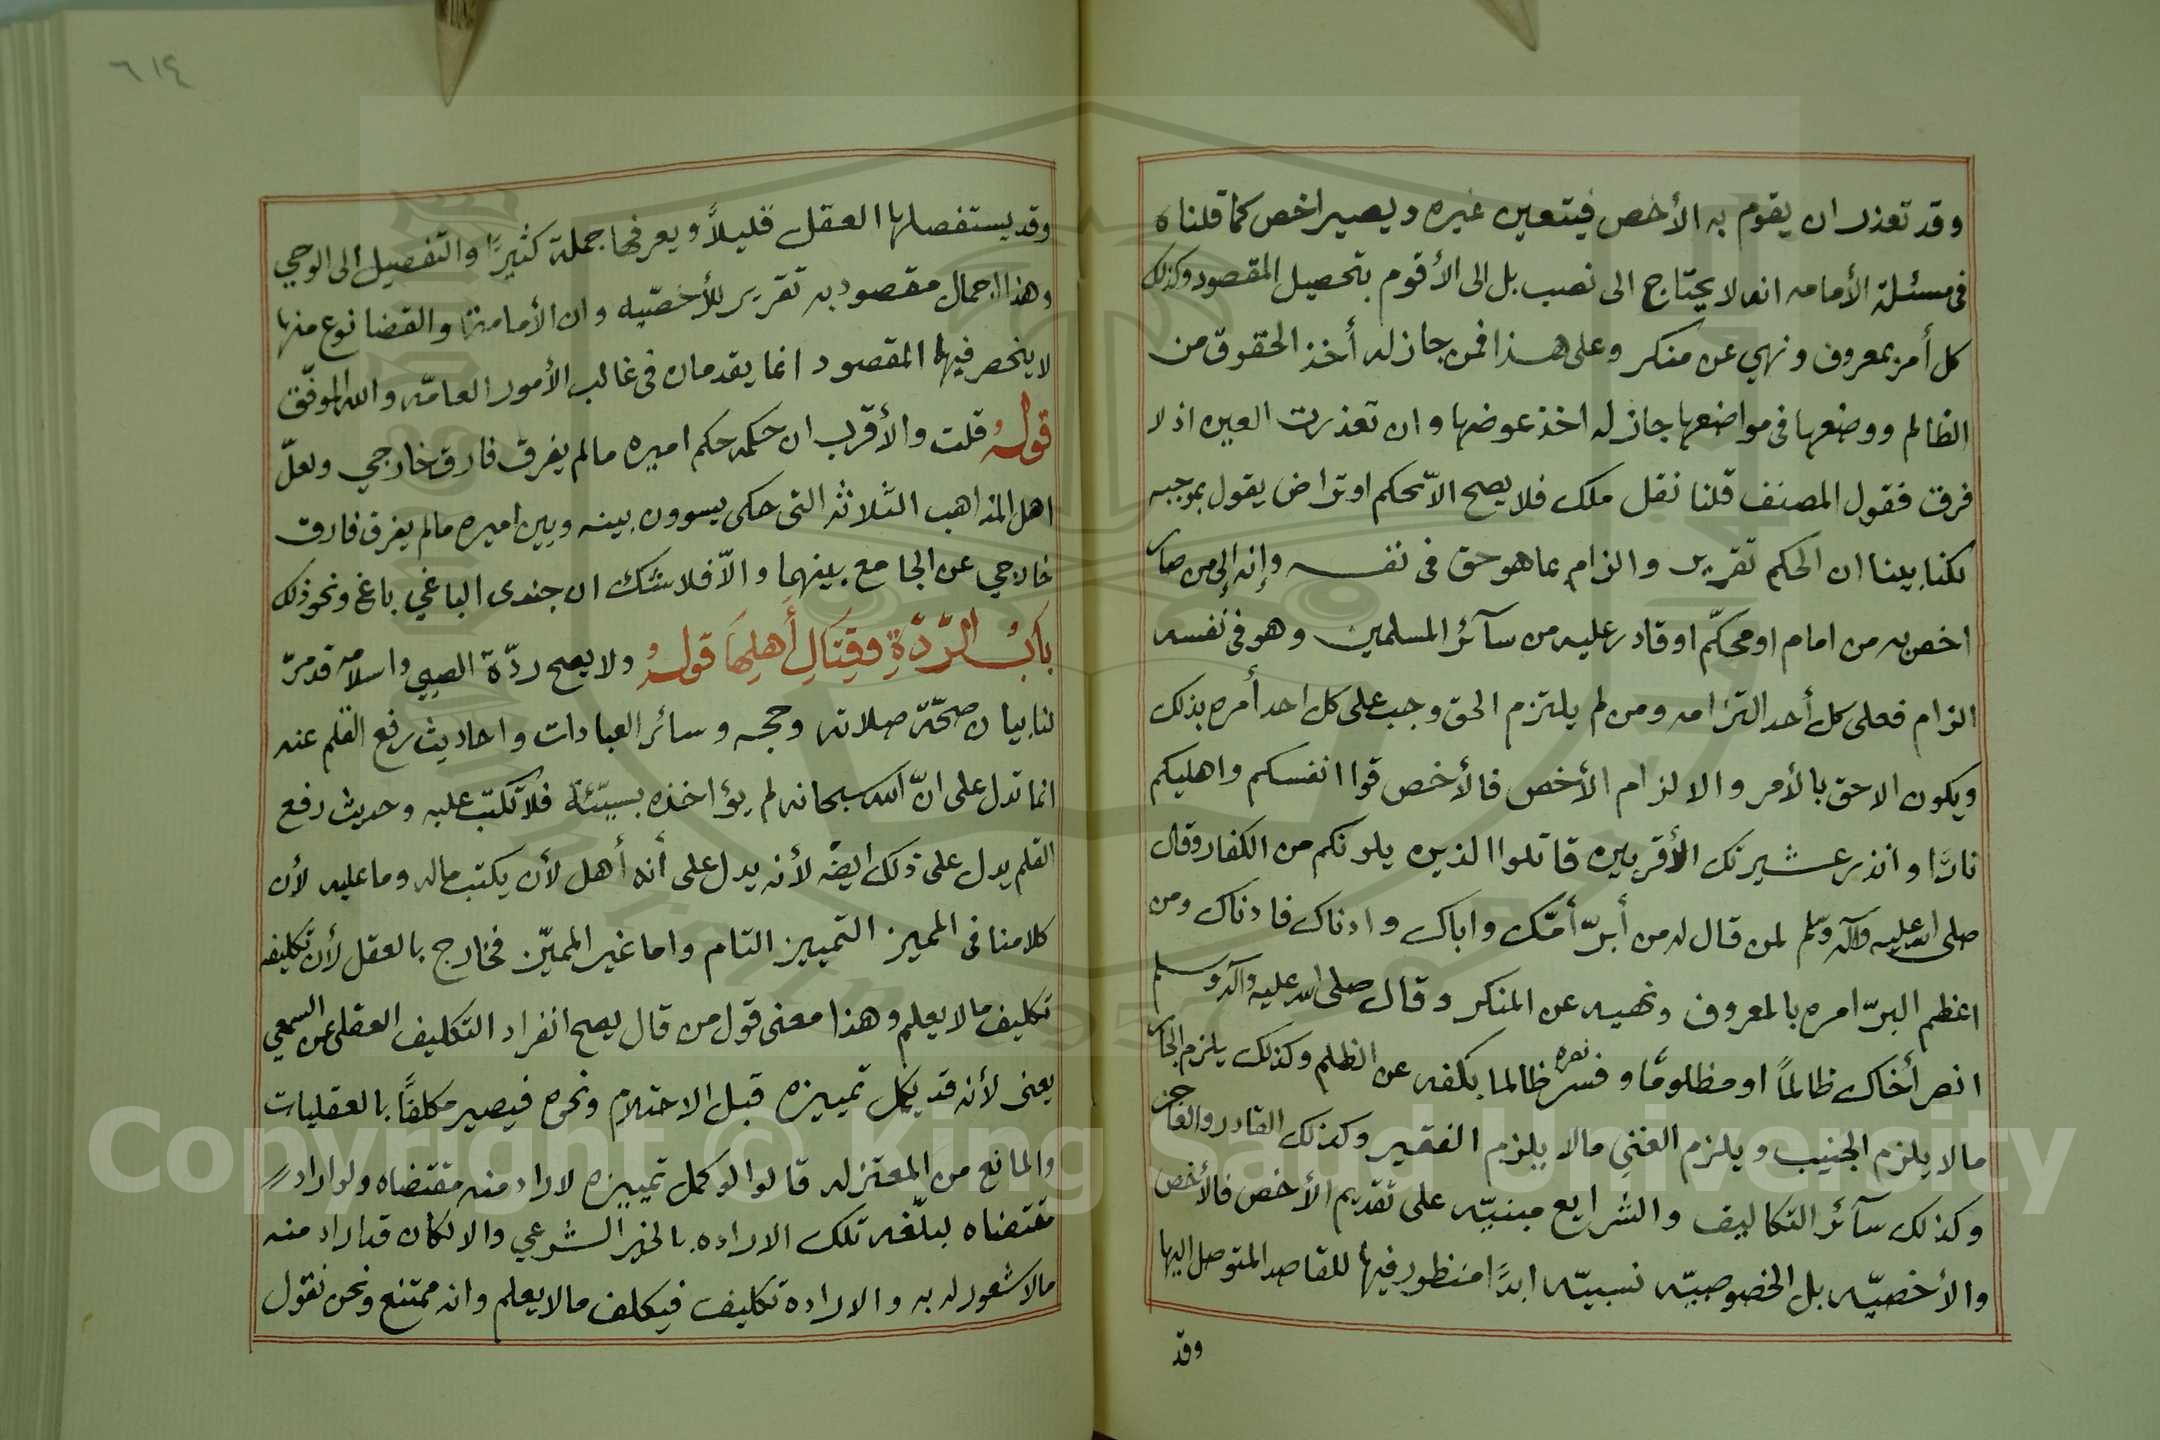 وقد تعذر ان يقوم به الأخص فيتعين غيره ويصير اخص كما قلناه
فى مسئلة الأمامه انه لا يحتاج الى نصب بل الى الأقوم بتحصيل المقصود وكذلك
كل أمر بمعروف ونهي عن منكر وعلى هذا فمن جاز له أخذ الحقوق من
الظالم ووضعها فى مواضعها جاز له اخذ عوضها وان تعذرت العين اذ لا
فرق فقول المصنف قلنا نقل ملك فلا يصح الا بحكم او تراض يقول بموجبه
لكنا بينا ان الحكم تقرير والزام بما هو حق فى نفسه وإنه إلى من صار
اخص به من امام او محكّم او قادر عليه من سآئر المسلمين وهو فى نفسه
الزام فعلى كل أحد التزامه ومن لم يلتزم الحق وجب على كل احد أمره بذلك
ويكون الاحق بالأمر والالزام الأخص فالأخص قوا انفسكم واهليكم
نارًا وانذر عشيرتك الأقربين قاتلوا الذين يلونكم من الكفار وقال
صلى الله عليه وآله وسلم لمن قال له من أبرّ أمّك واباك وادناك فادناك ومن
اعظم البرّ امره بالمعروف ونهيه عن المنكر وقال صلى الله عليه وآله وسلم
انصر أخاك ظالماً او مظلومًا وفسر نصره ظالما بكفه عن الظلم وكذلك يلزم الجار
مالا يلزم الجنيب ويلزم الغني مالا يلزم الفقير وكذلك القادر والعاجز
وكذلك سآئر التكاليف والشرايع مبنيّه على تقديم الأخص فالأخص
والأخصيّه بل الخصوصيّه نسبيّه ابدًا منظور فيها للمقاصد المتوصل اليها
وقد
٦١٤
وقد يستفصلها العقل قليلاً ويعرفها جملة كثيرًا والتفصيل الى الوحي
وهذا الاجمال مقصود به تقرير للأخصّيه وان الأمامة والقضا نوع منها
لا ينحصر فيهما المقصود انما يقدمان فى غالب الأمور العامّه والله الموفّق
قولهُ قلت والأقرب ان حكمه حكم اميره مالم يفرق فارق خارجي ولعلّ
اهل المذاهب الثلاثة التى حكى يسوون بينه وبين اميره مالم يفرق فارق
خارجي عن الجامع بينهما والاّ فلا شك ان جندى الباغي باغ ونحو ذلك
بابُ الرّدّةِ وقِتَالِ أَهلِهَا قولهُ ولا يصح ردّة الصبي واسلامه قد مرّ
لنا بيان صحّة صلاته وحجه وسائر العبادات واحاديث رفع القلم عنه
انما تدل على انّ الله سبحانه لم يؤاخذه بسيّئة فلا تكتب عليه وحديث رفع
القلم يدل على ذلك ايضًا لأنه يدل على أنه أهل لأن يكتب ماله وما عليه لأن
كلامنا فى المميز التمييز التام واما غير المميّز فخارج بالعقل لأن تكليفه
تكليف مالا يعلم وهذا معنى قول من قال يصح انفراد التكليف العقلى عن السمعي
يعنى لأنه قد يكمل تمييزه قبل الاحتلام ونحوه فيصير مكلفًا بالعقليات
والمانع من المعتزله قالوا لو كمل تمييزه لاراد منه مقتضاه ولو اراد
مقتضاه لبلّغه تلك الاراده بالخبر الشرعي والا لكان قد اراد منه
مالا شعور له به والاراده تكليف فيكلف مالا يعلم وانه ممتنع ونحن نقول
Copyright © King Saud University